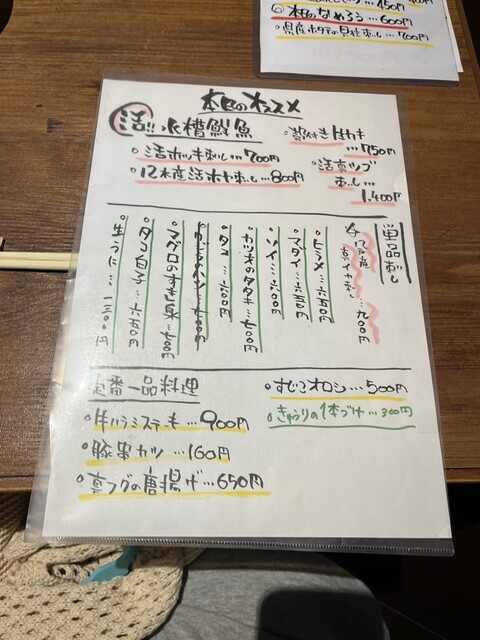 …450円
本日のなめろう…600円
県産ホタテの貝柱刺し…700円
本日のオススメ
活!! 水槽鮮魚
活ホッキ刺し…700円
活ホヤ刺し…800円
殻付きカキ
…750円
活真ツブ
刺し…
1.400円
単品刺し
…九00円
ヒラメ…六五0円
マダイ…六五0円
ソイ…六00円
カツオのタタキ…七00円
タコ…六00円
マグロのすき身…七00円
タコ白子…六五0円
生うに…一二00円
定番一品料理
すじこオロシ…500円
きゅうりの1本づけ…300円
牛ハラミステーキ…900円
豚串カツ…160円
真フグの唐揚げ…650円